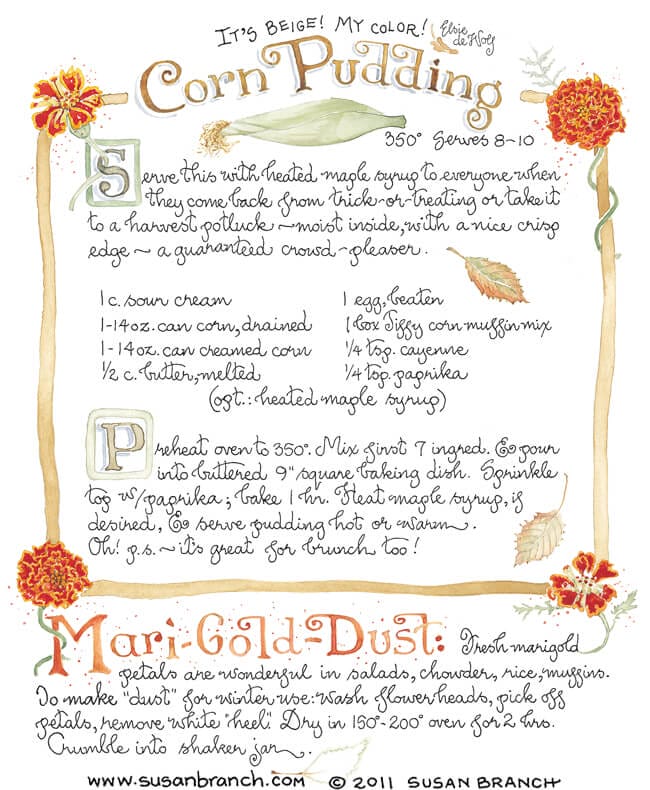 It's Beige! My Color! Elsie de Wolf
Corn Pudding
350° Serves 8-10
Serve this with heated maple syrup to everyone when
they come back from trick-or-treating or take it
to a harvest potluck ~ moist inside, with a nice crisp
edge ~ a guaranteed crowd-pleaser.
1 c. sour cream
1 egg, beaten
1-14oz. can corn, drained
1 box Jiffy corn-muffin mix
1-14oz. can creamed corn
1/4 tsp. cayenne
1/2 c. butter, melted
1/4 tsp. paprika
(opt.: heated maple syrup)
Preheat oven to 350°. Mix first 7 ingred. & pour
into buttered 9" square baking dish. Sprinkle
top w/paprika; bake 1 hr. Heat maple syrup, if
desired, & serve pudding hot or warm.
Oh! p.s. ~ it's great for brunch too!
Mari-Gold-Dust: Fresh marigold
petals are wonderful in salads, chowder, rice, muffins.
To make "dust" for winter use: wash flowerheads, pick off
petals, remove white "heel." Dry in 150°-200° oven for 2 hrs.
Crumble into shaker jar.
www.susanbranch.com © 2011 Susan Branch